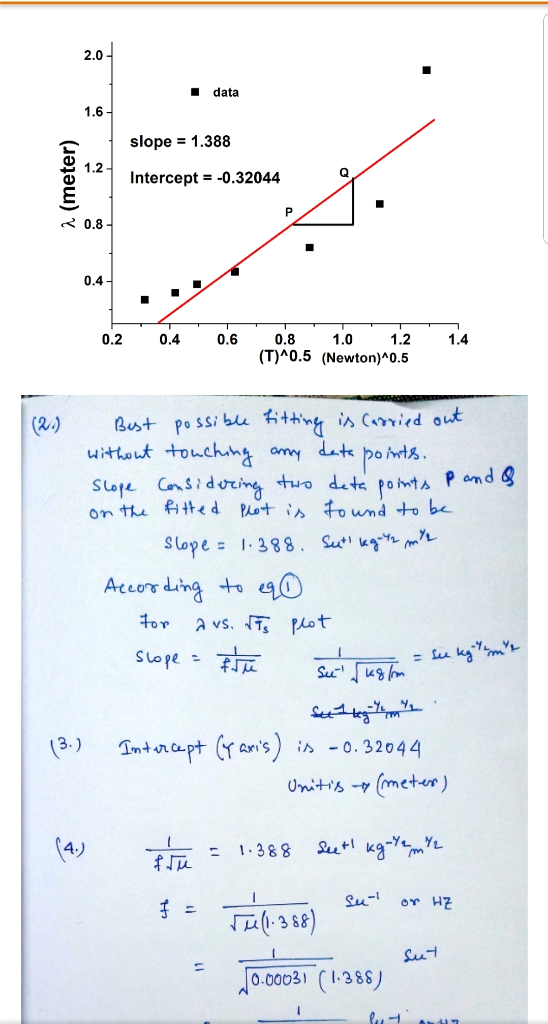 2.0
data
1.6
slope = 1.388
1.2
Intercept = -0.32044
Q
P
λ (meter)
0.8
0.4
0.2 0.4 0.6 0.8 1.0 1.2 1.4
(T)^0.5 (Newton)^0.5
(2.) Best possible fitting is carried out
without touching any data points.
Slope considering two data points P and Q
on the fitted plot is found to be
slope = 1.388. Sec+1 kg-1/2 m1/2
According to eq 1
For λ vs. √Ts plot
Slope = 1/f√μ 1/Sec-1 √kg/m = Sec kg-1/2 m1/2
(3.) Intercept (Y axis) is -0.32044
Unit is → (meter)
(4.) 1/f√μ = 1.388 Sec+1 kg-1/2 m1/2
f = 1/√μ(1.388) Sec-1 or HZ
= 1/√0.00031 (1.388) Sec-1